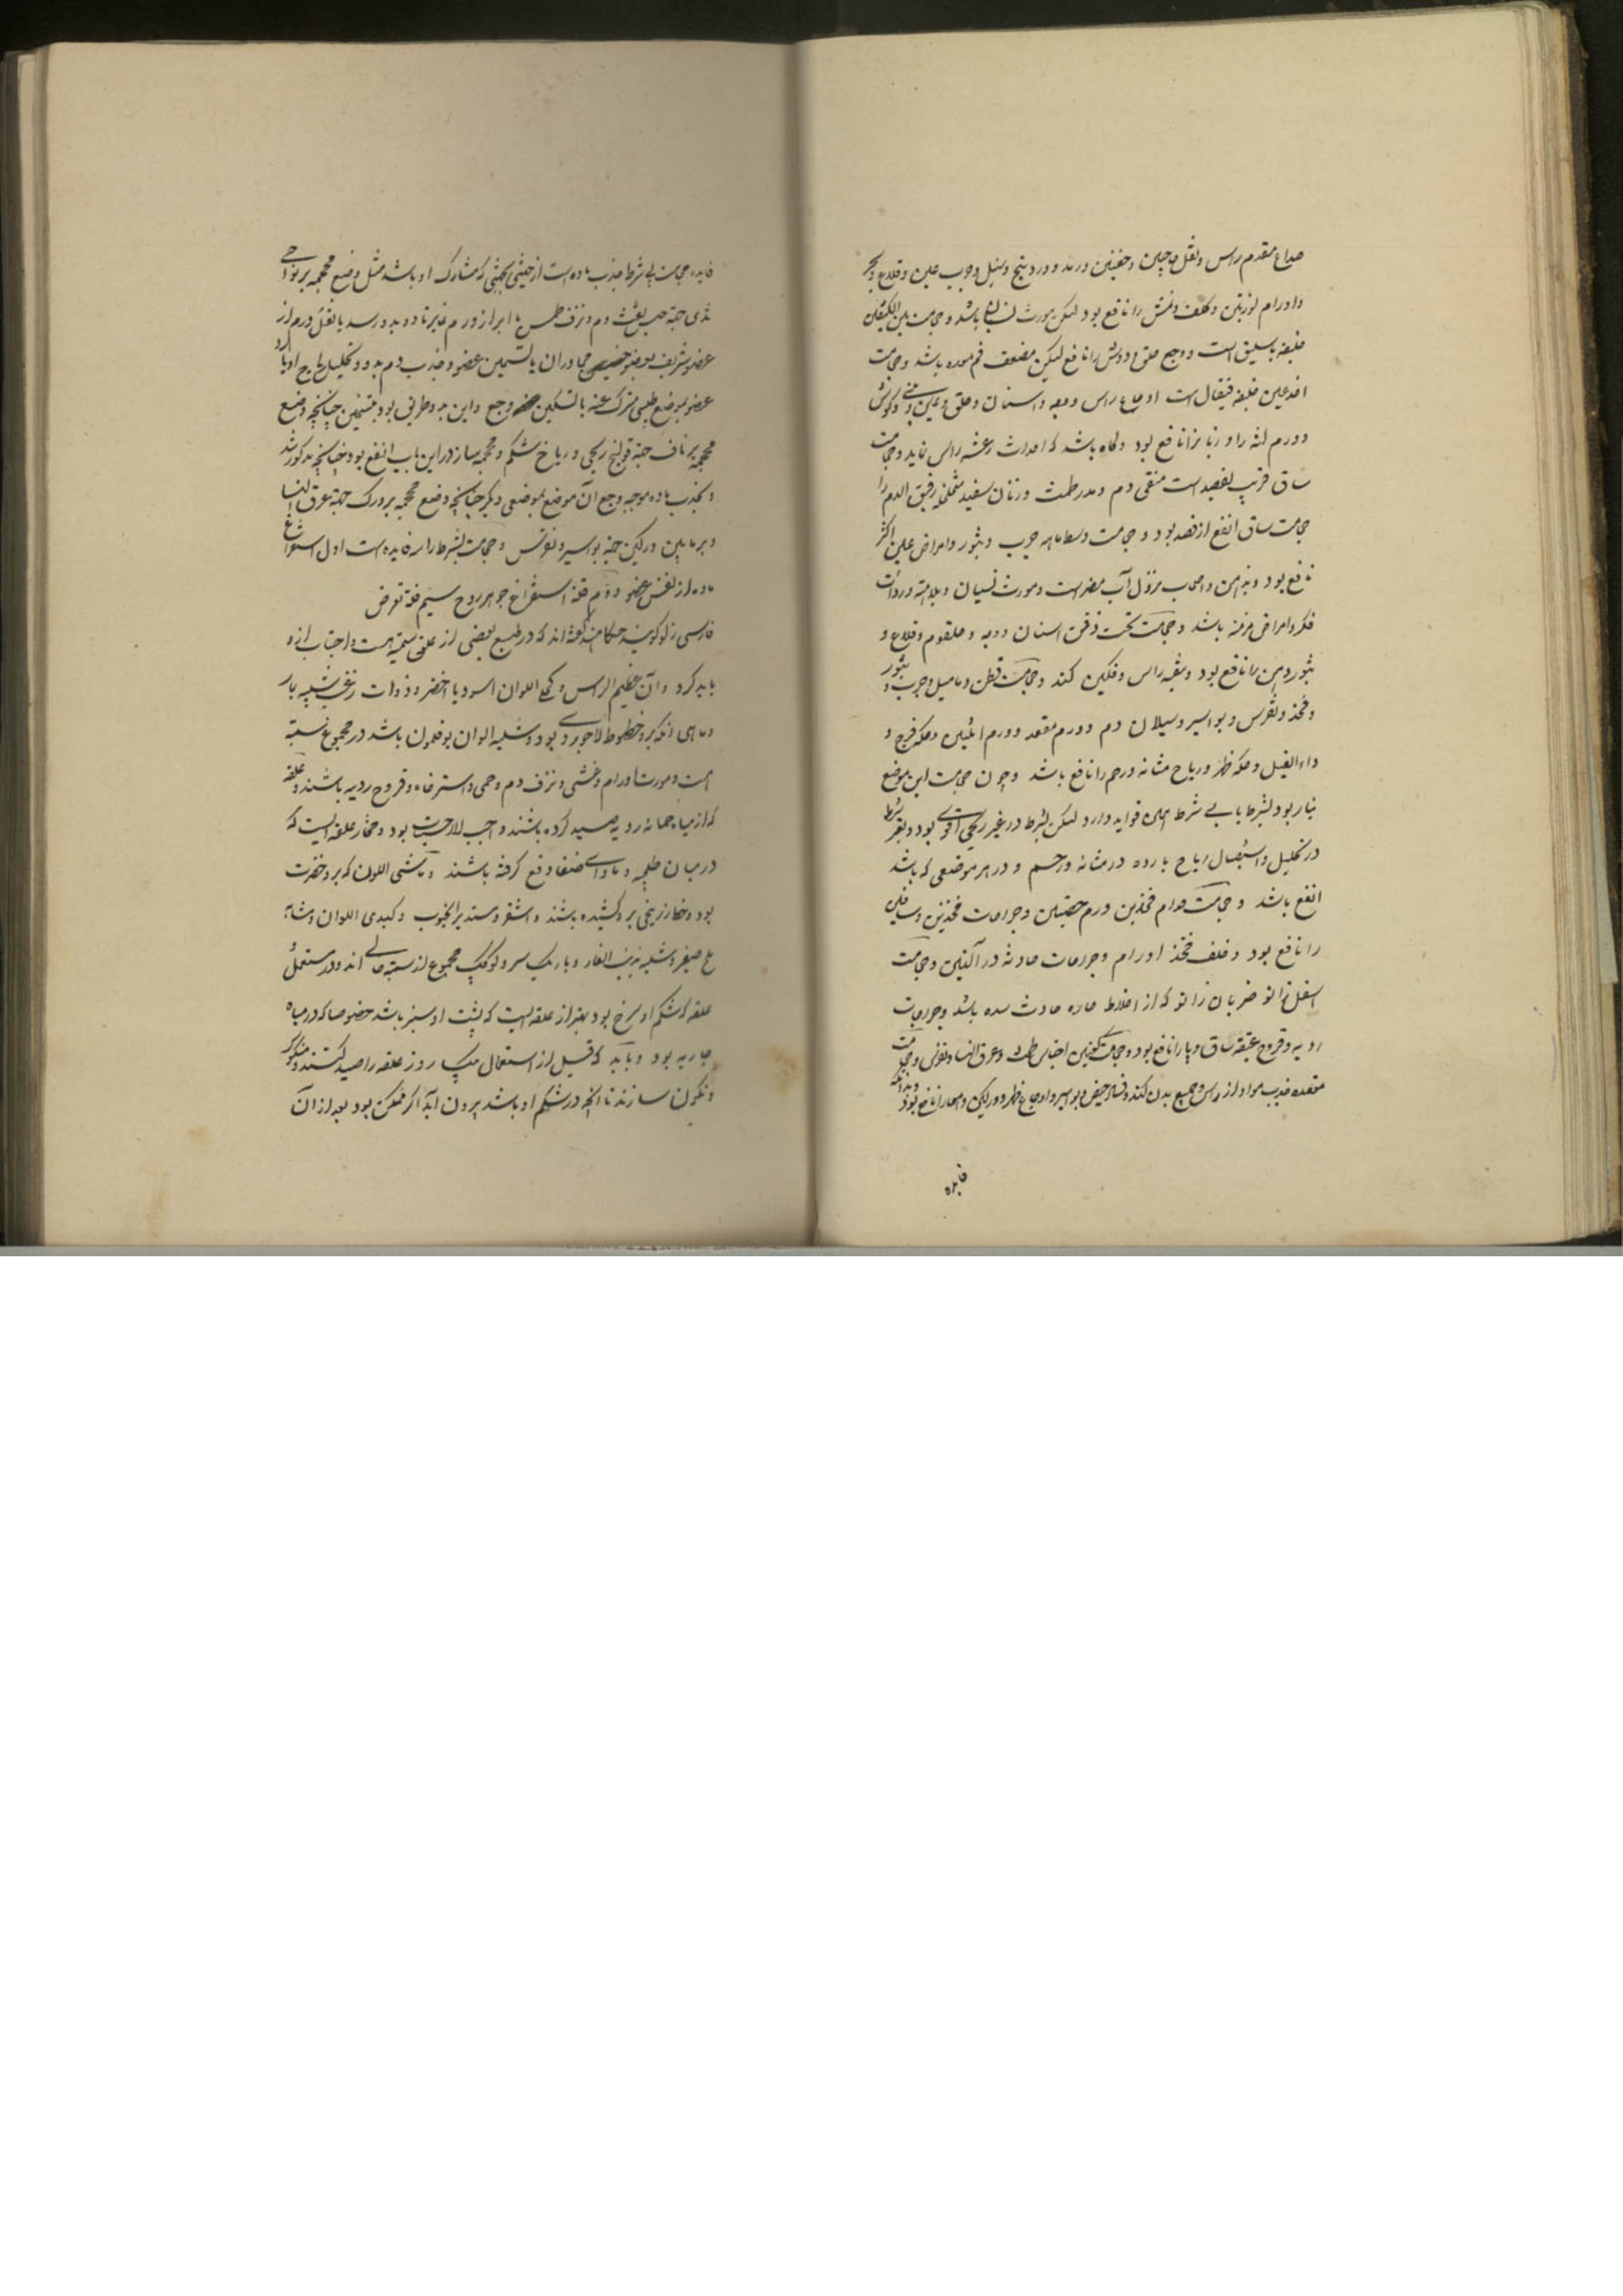 صداع مقدم راس و ثقل حاجبین و جفنین و رمد و وردینج و سبل و جرب عین و قلاع و بخر
و اورام لوزتین و کلف و نمش را نافع بود لیکن مورث نسیان باشد و حجامت بین الکتفین
خلیفه باسلیق است و وجع حلق و دوش را نافع لیکن مضعف فم معده باشد و حجامت
اخدعین خلیفه قیفال است اوجاع راس و وجه و اسنان و حلق و عین و بینی و گوش
و ورم لثه را و زبان را نافع بود و گاه باشد که احداث رعشه راس نماید و حجامت
ساق قریب بفصد است منقی دم و مدر طمث و زنان سفید متخلخل رقیق الدم را
حجامت ساق انفع از فصد بود و حجامت هامه جرب و بثور و امراض عین اکثر
نافع بود و به ذهن و اصحاب نزول آب مضر است و مورث نسیان و بلاهت و ردائت
فکر و امراض مزمنه باشد و حجامت تحت ذقن اسنان و وجه و حلقوم و قلاع و
بثور دهن را نافع بود و تنقیه راس و فکین کند و حجامت قطن دمامیل و جرب و بثور
و فخذ و نقرس و بواسیر و سیلان دم و ورم مقعد و ورم انثیین و حکه فرج و
داء الفیل و حکه ظهر و ریاح مثانه و رحم را نافع باشد و چون حجامت این موضع
بنار بود بشرط یا بی شرط همین فواید دارد لیکن بشرط در غیر ریحی اقوی بود و بغیر شرط
در تحلیل و استیصال ریاح بارده در مثانه و رحم و در هر موضعی که باشد
انفع باشد و حجامت قدام فخذین ورم خصیتین و جراحات فخذین و ساقین
را نافع بود و خلف فخذ اورام و جراحات حادثه در الیتین و حجامت
اسفل زانو ضربان زانو که از اخلاط حاره حادث شده باشد و جراحات
ردیه و قروح عتیقه ساق و پا را نافع بود و حجامت کعبین احتباس طمث و عرق النسا و نقرس و حجامت
مقعده جذب مواد از راس و جمیع بدن کند و فساد حیض و بواسیر و اوجاع ظهر و ورکین و امعا را نافع بود
فایده
فایده حجامت بی شرط جذب ماده است از جهتی بجهتی که مشارک او باشد مثل وضع محجمه بر نواحی
ثدی جهة حبس نفث دم و نزف طمث یا ابراز ورم غایر تا دوا بدو رسد یا نقل ورم از
عضو شریف بعضو خسیس مجاور آن یا تسمین عضو و جذب دم بدو و تحلیل ریاح او یا رد
عضو بموضع طبیعی متحرک عنه یا تسکین وجع و این بدو طریق بود چنانچه وضع
محجمه بر ناف جهة قولنج ریحی و ریاح شکم و محجمه بنار در این باب انفع بود چنانچه مذکور شد
و بجذب ماده موجبه وجع آن موضع بموضعی دیگر چنانچه وضع محجمه بر ورک جهة عرق النسا
و بر مابین ورکین جهة بواسیر و نقرس و حجامت بشرط را سه فایده است اول استفراغ
ماده از نفس عضو دوم قلة استفراغ جوهر روح سیم قلة تعرض
فارسی زلو گویند حکما هند گفته‌اند که در طبع بعضی از علق سمیة هست و اجتناب از و
باید کرد و آن عظیم الراس و کحلی اللون اسود یا اخضر و ذوات زغب شبیه بار
و ماهی آنکه برو خطوط لاجوردی بود و شبیه الوان بوقلمون باشد در مجموع سمیة
است و مورث اورام و غشی و نزف دم و حمی و استرخا و قروح ردیه باشند و علقه
که از میاه حماة ردیه صید کرده باشند واجب الاجتناب بود و مختار علقه ایست که
در میان طحلب و ماوای ضفادع گرفته باشند و ماشی اللون که برو خضرت
بود و خط زرنیخی برو کشیده باشند و اشقر و مستدیر الجنوب و کبدی اللون و مشابه
ملخ صغیر و شبیه بذنب الفار و باریک سر و کوچک مجموع از سمیة خالی اند و در مستعمل
علقه که شکم او سرخ بود بهتر از علقه ایست که پشت او سبز باشد خصوصا که در میاه
جاریه بود و باید که قبل از استعمال بیک روز علقه را صید کنند و منکوس
و نگون سازند تا آنچه در شکم او باشد بیرون آید اگر ممکن بود بعد از آن